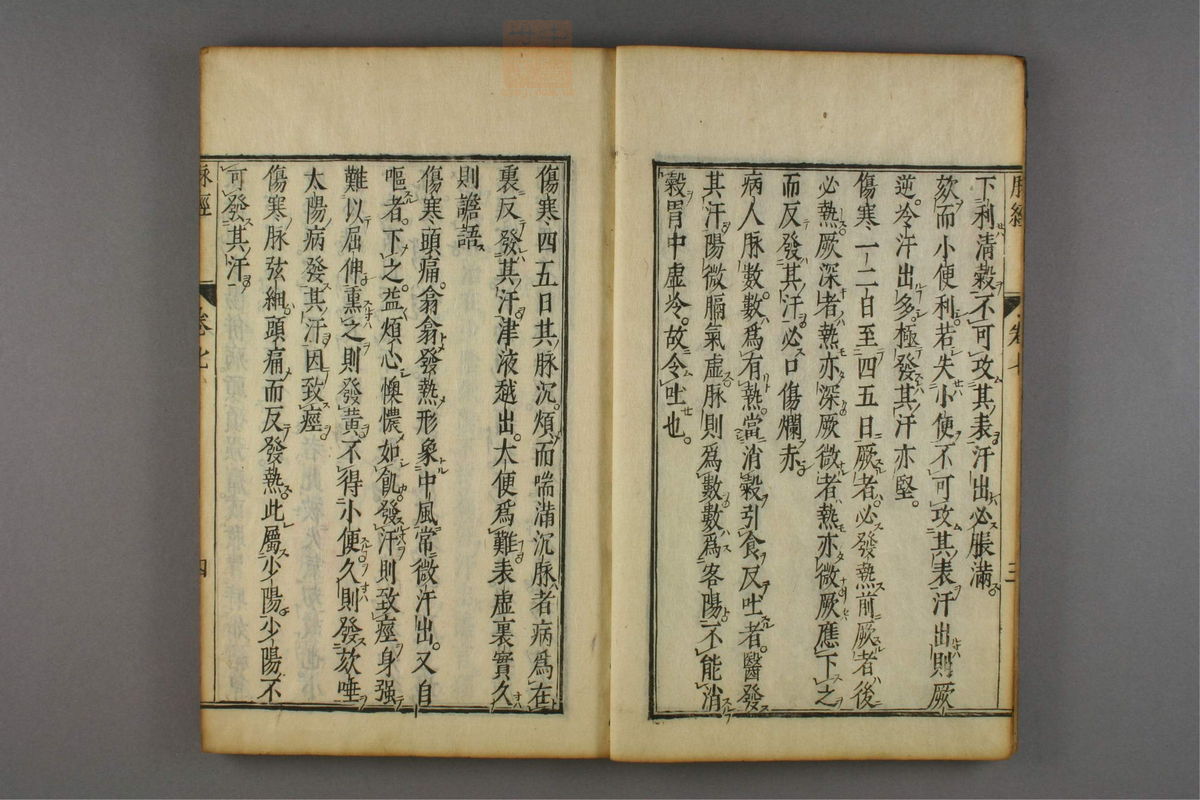 脉經
卷七
三
下利清穀不可攻其表汗出必脹滿
欬而小便利若失小便不可攻其表汗出則厥
逆冷汗出多極發其汗亦堅。
傷寒一二日至四五日厥者。必發熱前厥者後
必熱厥深者熱亦深厥微者熱亦微厥應下之
而反發其汗必口傷爛赤
病人脉數數爲有熱當消穀引食反吐者。醫發
其汗陽微膈氣虛脉則爲數數爲客陽不能消
穀胃中虛冷。故令吐也。
傷寒四五日其脉沉。煩而喘滿沉脉者病爲在
裏反發其汗津液越出。大便爲難表虛裏實久
則譫語
傷寒頭痛。翕翕發熱形象中風常微汗出。又自
嘔者。下之。益煩心懊憹如飢發汗則致痙身强
難以屈伸熏之則發黃不得小便久則發欬唾
太陽病發其汗因致痙
傷寒脉弦細。頭痛而反發熱此屬少陽少陽不
可發其汗
脉經
卷七
四